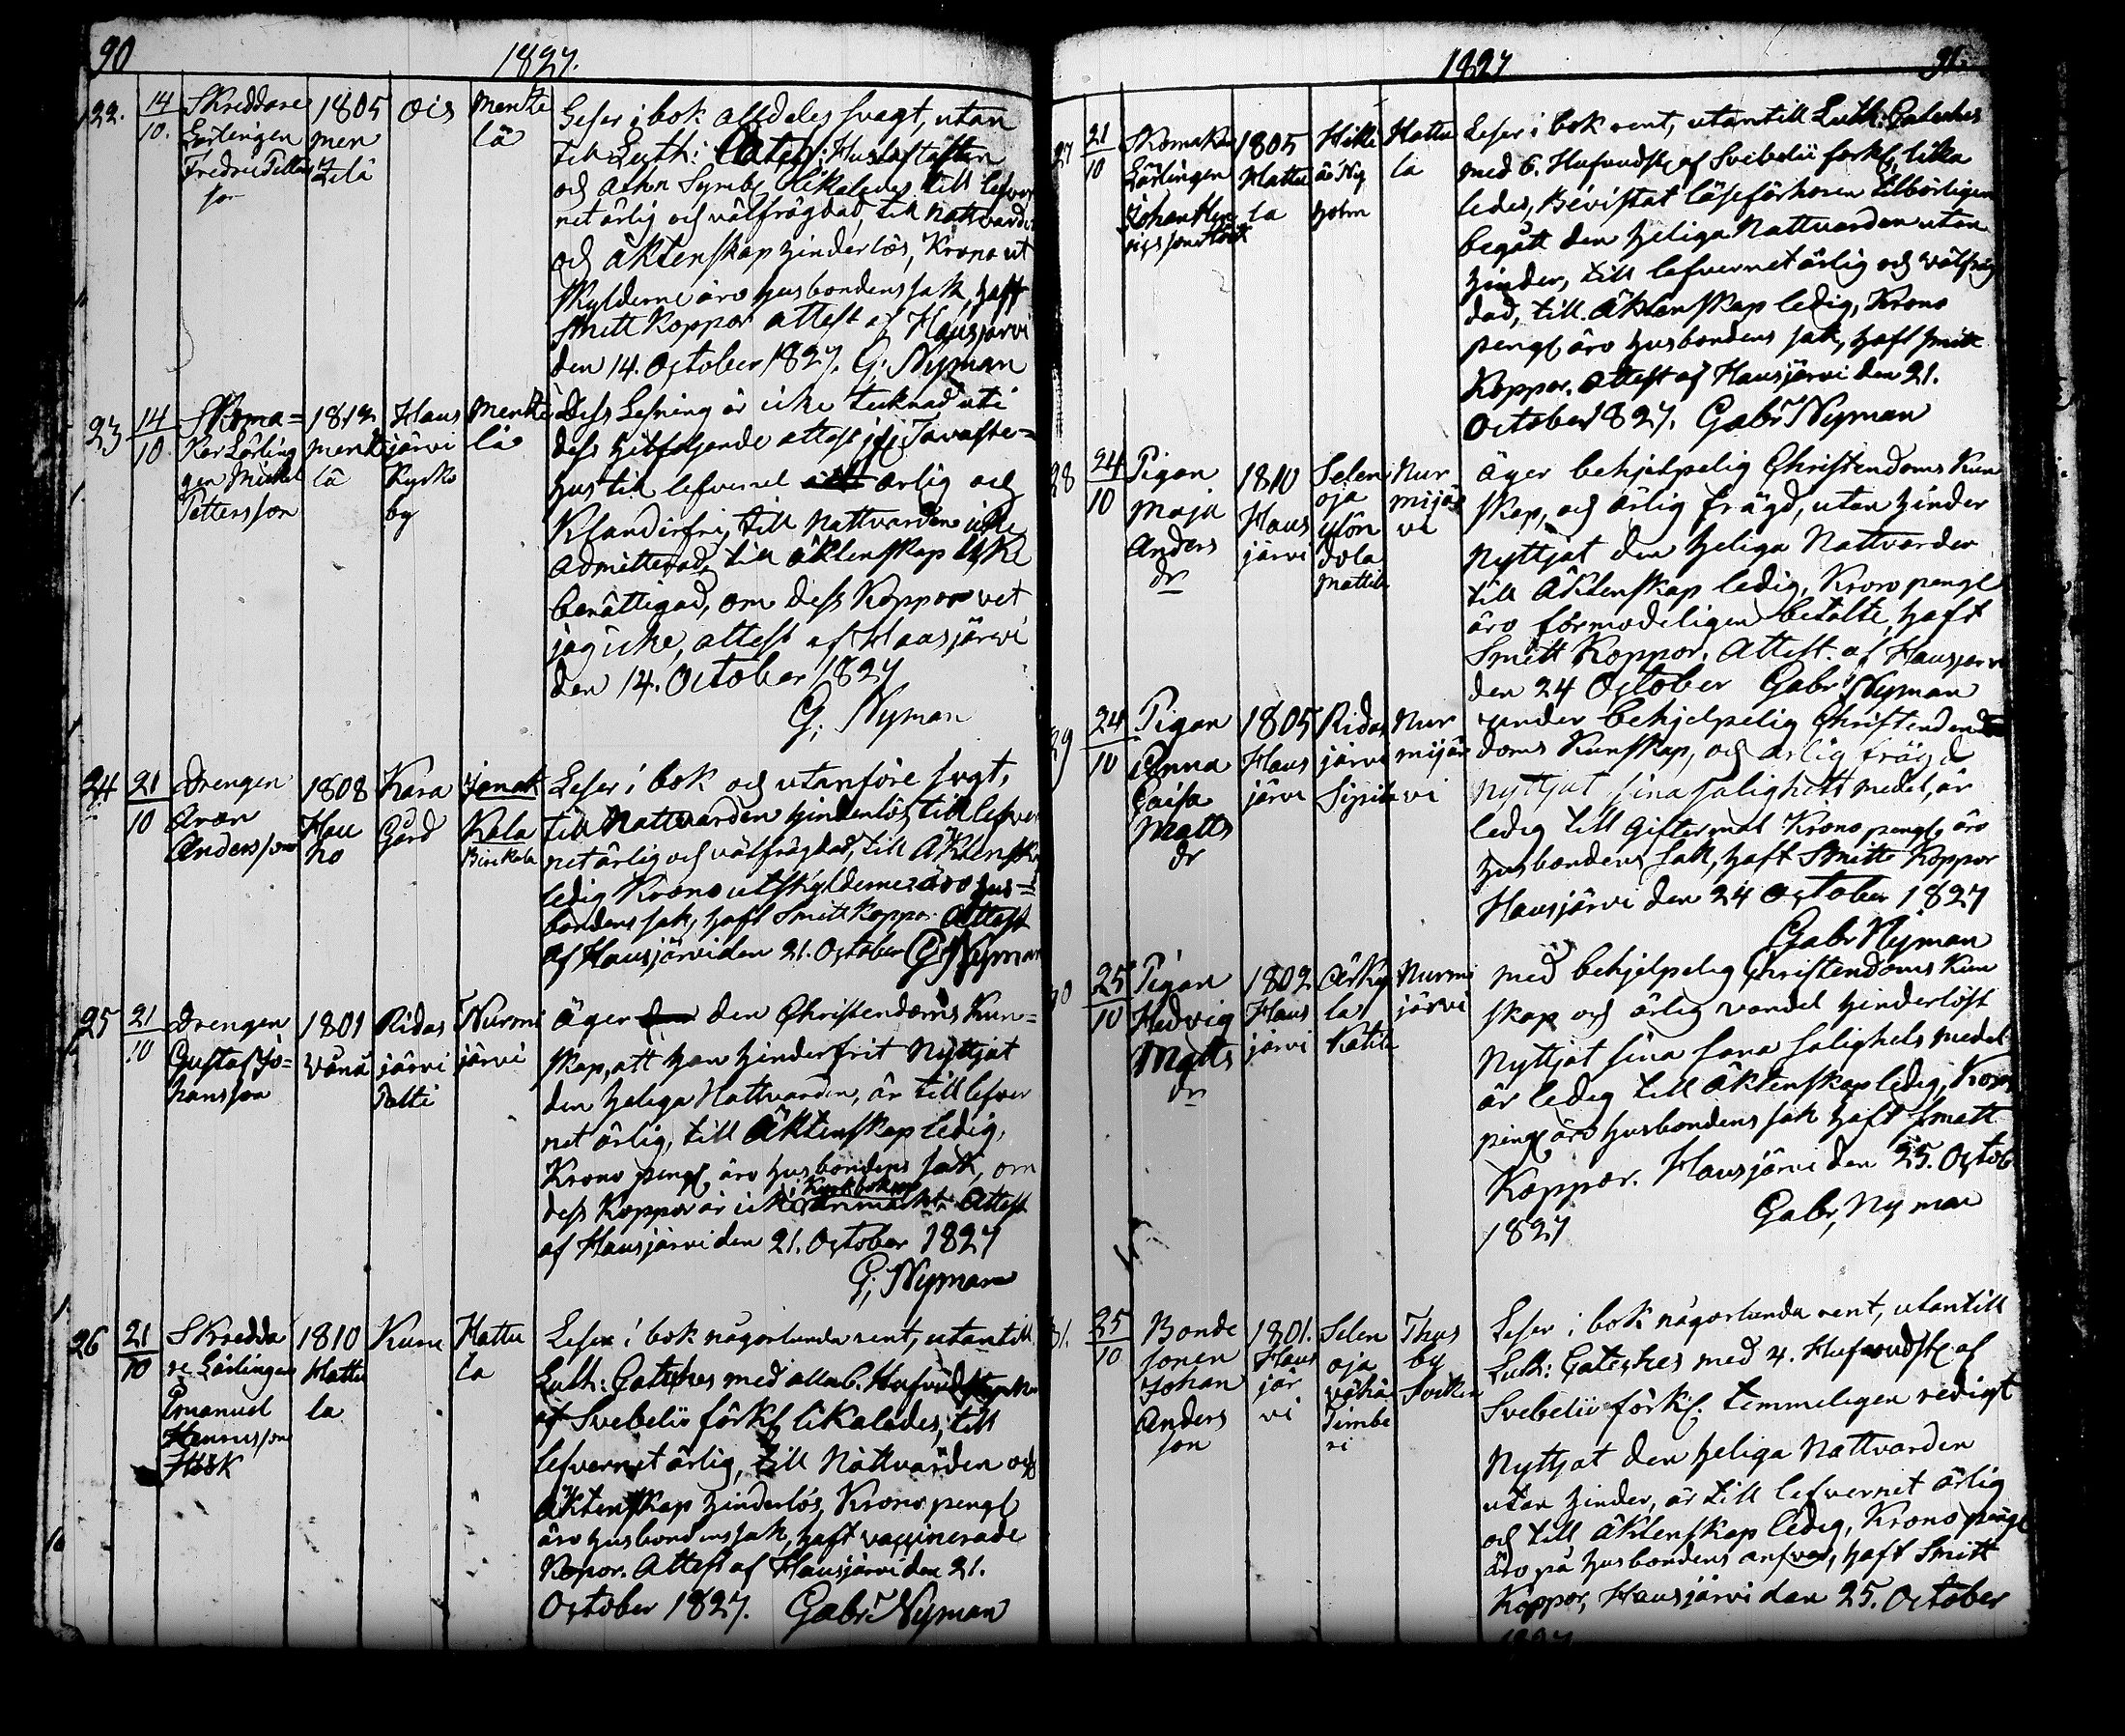 90
1827.
122.
14/10.
Skreddare
Lärlingen
Fredric Petters
son
1805
men
zelä
Ois
Mentze
lä
Leser i bok alldeles svagt, utan
till Luth: Cateches: Hustaflan
och Athn Symb: likaledes till lefver
net ärlig och välfrägdad, till Nattvarden
och Äktenskap hinderlös, Krono ut
skylderne äro husbondens sak, haft
Smitt Koppor attest af Hausjärvi
den 14. October 1827. G; Nyman
23
14/10.
Skoma=
kar Lärling
gen Mickel
Pettersson
1812
mentze
lä
Haus
järvi
Kyrko
by
Mentze
lä
Dess Lesning är icke tecknad uti
dess hitfölgende attest ifrån Tavaste=
hus till lefvernet ärlig och
Klanderfri, till Nattvarden icke
admitterad, till äktenskap icke
berättigad, om dess Koppor vet
jag icke, attest af Hausjärvi
den 14. October 1827
G; Nyman
24
21/10
Drengen
Aron
Andersson
1808
Hau
ho
Kara
Gård
Janak
Kala
Leser i bok och utanföre svgt,
till Nattvarden hinderlös, till lefver
net ärlig och välfrägdad, till Äktenskap
ledig Krono utskylderne äro hus=
bondens sak, haft Smitt Koppor. Attest
af Hausjärvi den 21. October G; Nyman
25
21/10
Drengen
Gustaf Jo=
hansson
1801
Vånå
Ridas
järvi
Palti
Nurmi
järvi
Äger den Christendoms Kun=
skap, att han hinderfrit Nyttjat
den heliga Nattvarden, är till lefver
net ärlig, till Äktenskap ledig,
Krono peng: äro husbondens sak, om
dess Koppor är icke i Kyrkboken anmärkt. Attest
af Hausjärvi den 21. October 1827
G; Nyman
26
21/10
Skredda
re Lärlingen
Emanuel
Henricsson
Höök
1810
Hattu
la
Kuru
Hattu
la
Leser i bok någorlunda rent, utantill
Luth: Cateches med alla 6. Hufvudstycken
af Svebelii förkl: likaledes, till
lefvernet ärlig, till Nattvarden och
Äktenskap hinderlös, Krono peng:
äro husbondens sak, haft vaccinerade
Kopor. Attest af Hausjärvi den 21.
October 1827. Gabr: Nyman
1827
91.
27
21/10
Skomakar
Lärlingen
Johan Hen
ricsson
1805
Hattu
la
Hikiä Ny
holm
Hattu
la
Leser i bok rent, utantill Luth: Cateches
med 6. Hufvudst: af Svebelii förkl: lika
ledes, Bevistat läseförhören tillbörligen
begått den heliga Nattvarden utan
hinder, till lefvernet ärlig och välfräg
dad, till Äktenskap ledig, Krono
peng: äro husbondens sak, haft smitt
Koppor. Attest af Hausjärvi den 21.
October 1827. Gabr: Nyman
28
24/10
Pigan
Maja
Anders
dr
1810
Haus
järvi
Selen
oja
ylön
dola
Mattila
Nur
mijär
vi
Äger behjelpelig Christendoms Kun
skap, och ärlig frägd, utan hinder
Nyttjat den heliga Nattvarden
till Äktenskap ledig, Krono peng:
äro förmodeligen betalte, haft
Smitt Koppor. Attest. af Hausjarvi
den 24 October Gabr: Nyman
29
24/10
Pigan
Anna
Caisa
Matts
dr
1805
Haus
järvi
Ridas
järvi
Sipilä
Nur
mijär
vi
Under behjelpelig Christendendo
doms Kunskap, och ärlig frägd
Nyttjat sina salighets medel, är
ledig till Giftermål Krono peng: äro
husbondens sak, haft Smitt Koppor
Hausjärvi den 24 October 1827
Gabr Nyman
30
25/10
Pigan
Hedvig
Matts
dr
1802
Haus
järvi
Ärky
lä
Katila
Nurmi
järvi
Med behjelpelig Christendoms Kun
skap och ärlig vandel hinderlöst
Nyttjat sina sana salighets medel
är ledig till Äktenskap ledig, Krono
peng: äro husbondens sak haft Smitt
Koppor. Hausjärvi den 25. Octob
1827 Gabr; Nyman
31.
25/10
Bonde
sonen
Johan
Anders
son
1801.
Haus
jär
vi
Selen
oja
Vähä
Timbe
ri
Thus
by
Leser i bok någorlunda rent, utantill
Luth: Cateches med 4. Hufvudst: af
Svebelii förkl: temmeligen redigt
Nyttjat den heliga Nattvarden
utan hinder, är till lefvernet ärlig
och till Äktenskap ledig, Krono peng:
äro på husbondens ansvar, haft Smitt
Koppor, Hausjärvi den 25. October
1827